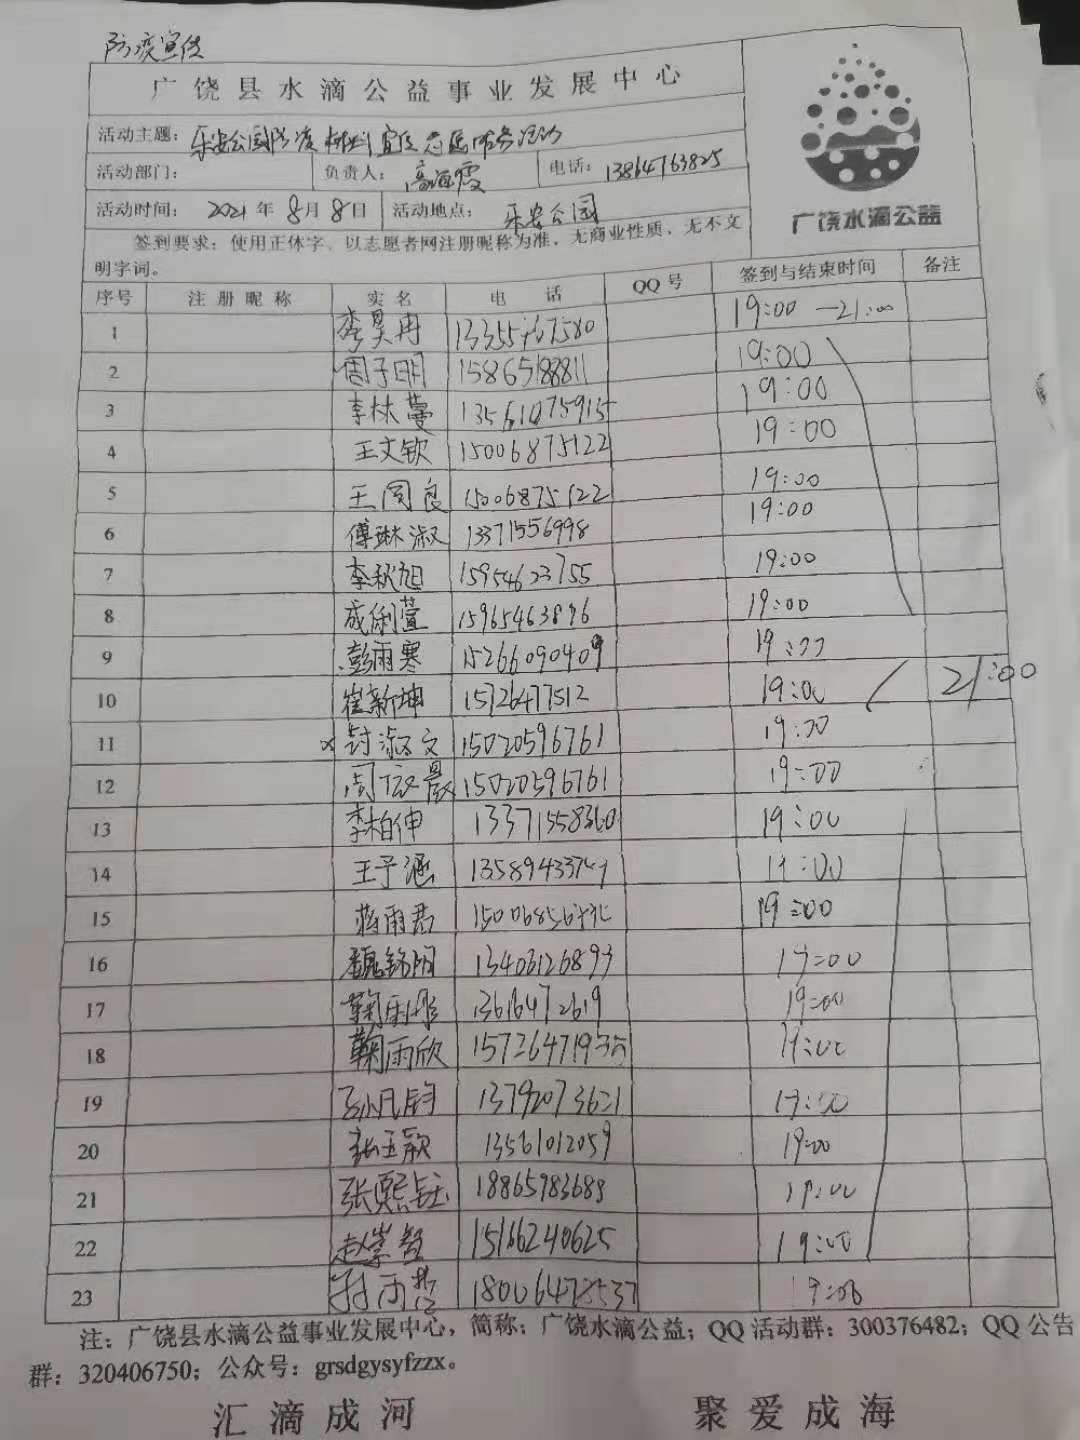 防疫宣传
广饶县水滴公益事业发展中心
活动主题：乐安公园防疫 宣传志愿服务活动
活动部门： 负责人：高海霞 电话：13864763825
活动时间： 2021年8月8日 活动地点： 乐安公园
广饶水滴公益
签到要求：使用正体字、以志愿者网注册昵称为准，无商业性质，无不文
明字词。
序号 注册昵称 实名 电 话 QQ号 签到与结束时间 备注
1 李昊冉 19:00 —21:00
2 周子明 15865188811 19:00
3 李林蔓 13561075915 19:00
4 王文钦 15006875122 19:00
5 王同良 15006875122 19:00
6 傅琳淑 13371556998 19:00
7 李秋旭 15954623755 19:00
8 成俐萱 15965463896 19:00
9 彭雨寒 15266090409 19:00
10 崔新坤 15726477512 19:00 21:00
11 封淑文 15020596761 19:00
12 周 晨 15020596761 19:00
13 李柏伸 13371558360 19:00
14 王予涵 19:00
15 蒋雨君 19:00
16 魏铭阳 13406126893 19:00
17 鞠 13616472619 19:00
18 鞠雨欣 19:00
19 孙凡钧 13792073621 19:00
20 张玉颖 13561012059 19:00
21 张熙钰 18865983689 19:00
22 赵崇智 15166240625 19:00
23 18006478537 19:00
注：广饶县水滴公益事业发展中心，简称：广饶水滴公益；QQ活动群：300376482；QQ公告
群：320406750；公众号：grsdgysyfzzx。
汇滴成河 聚爱成海